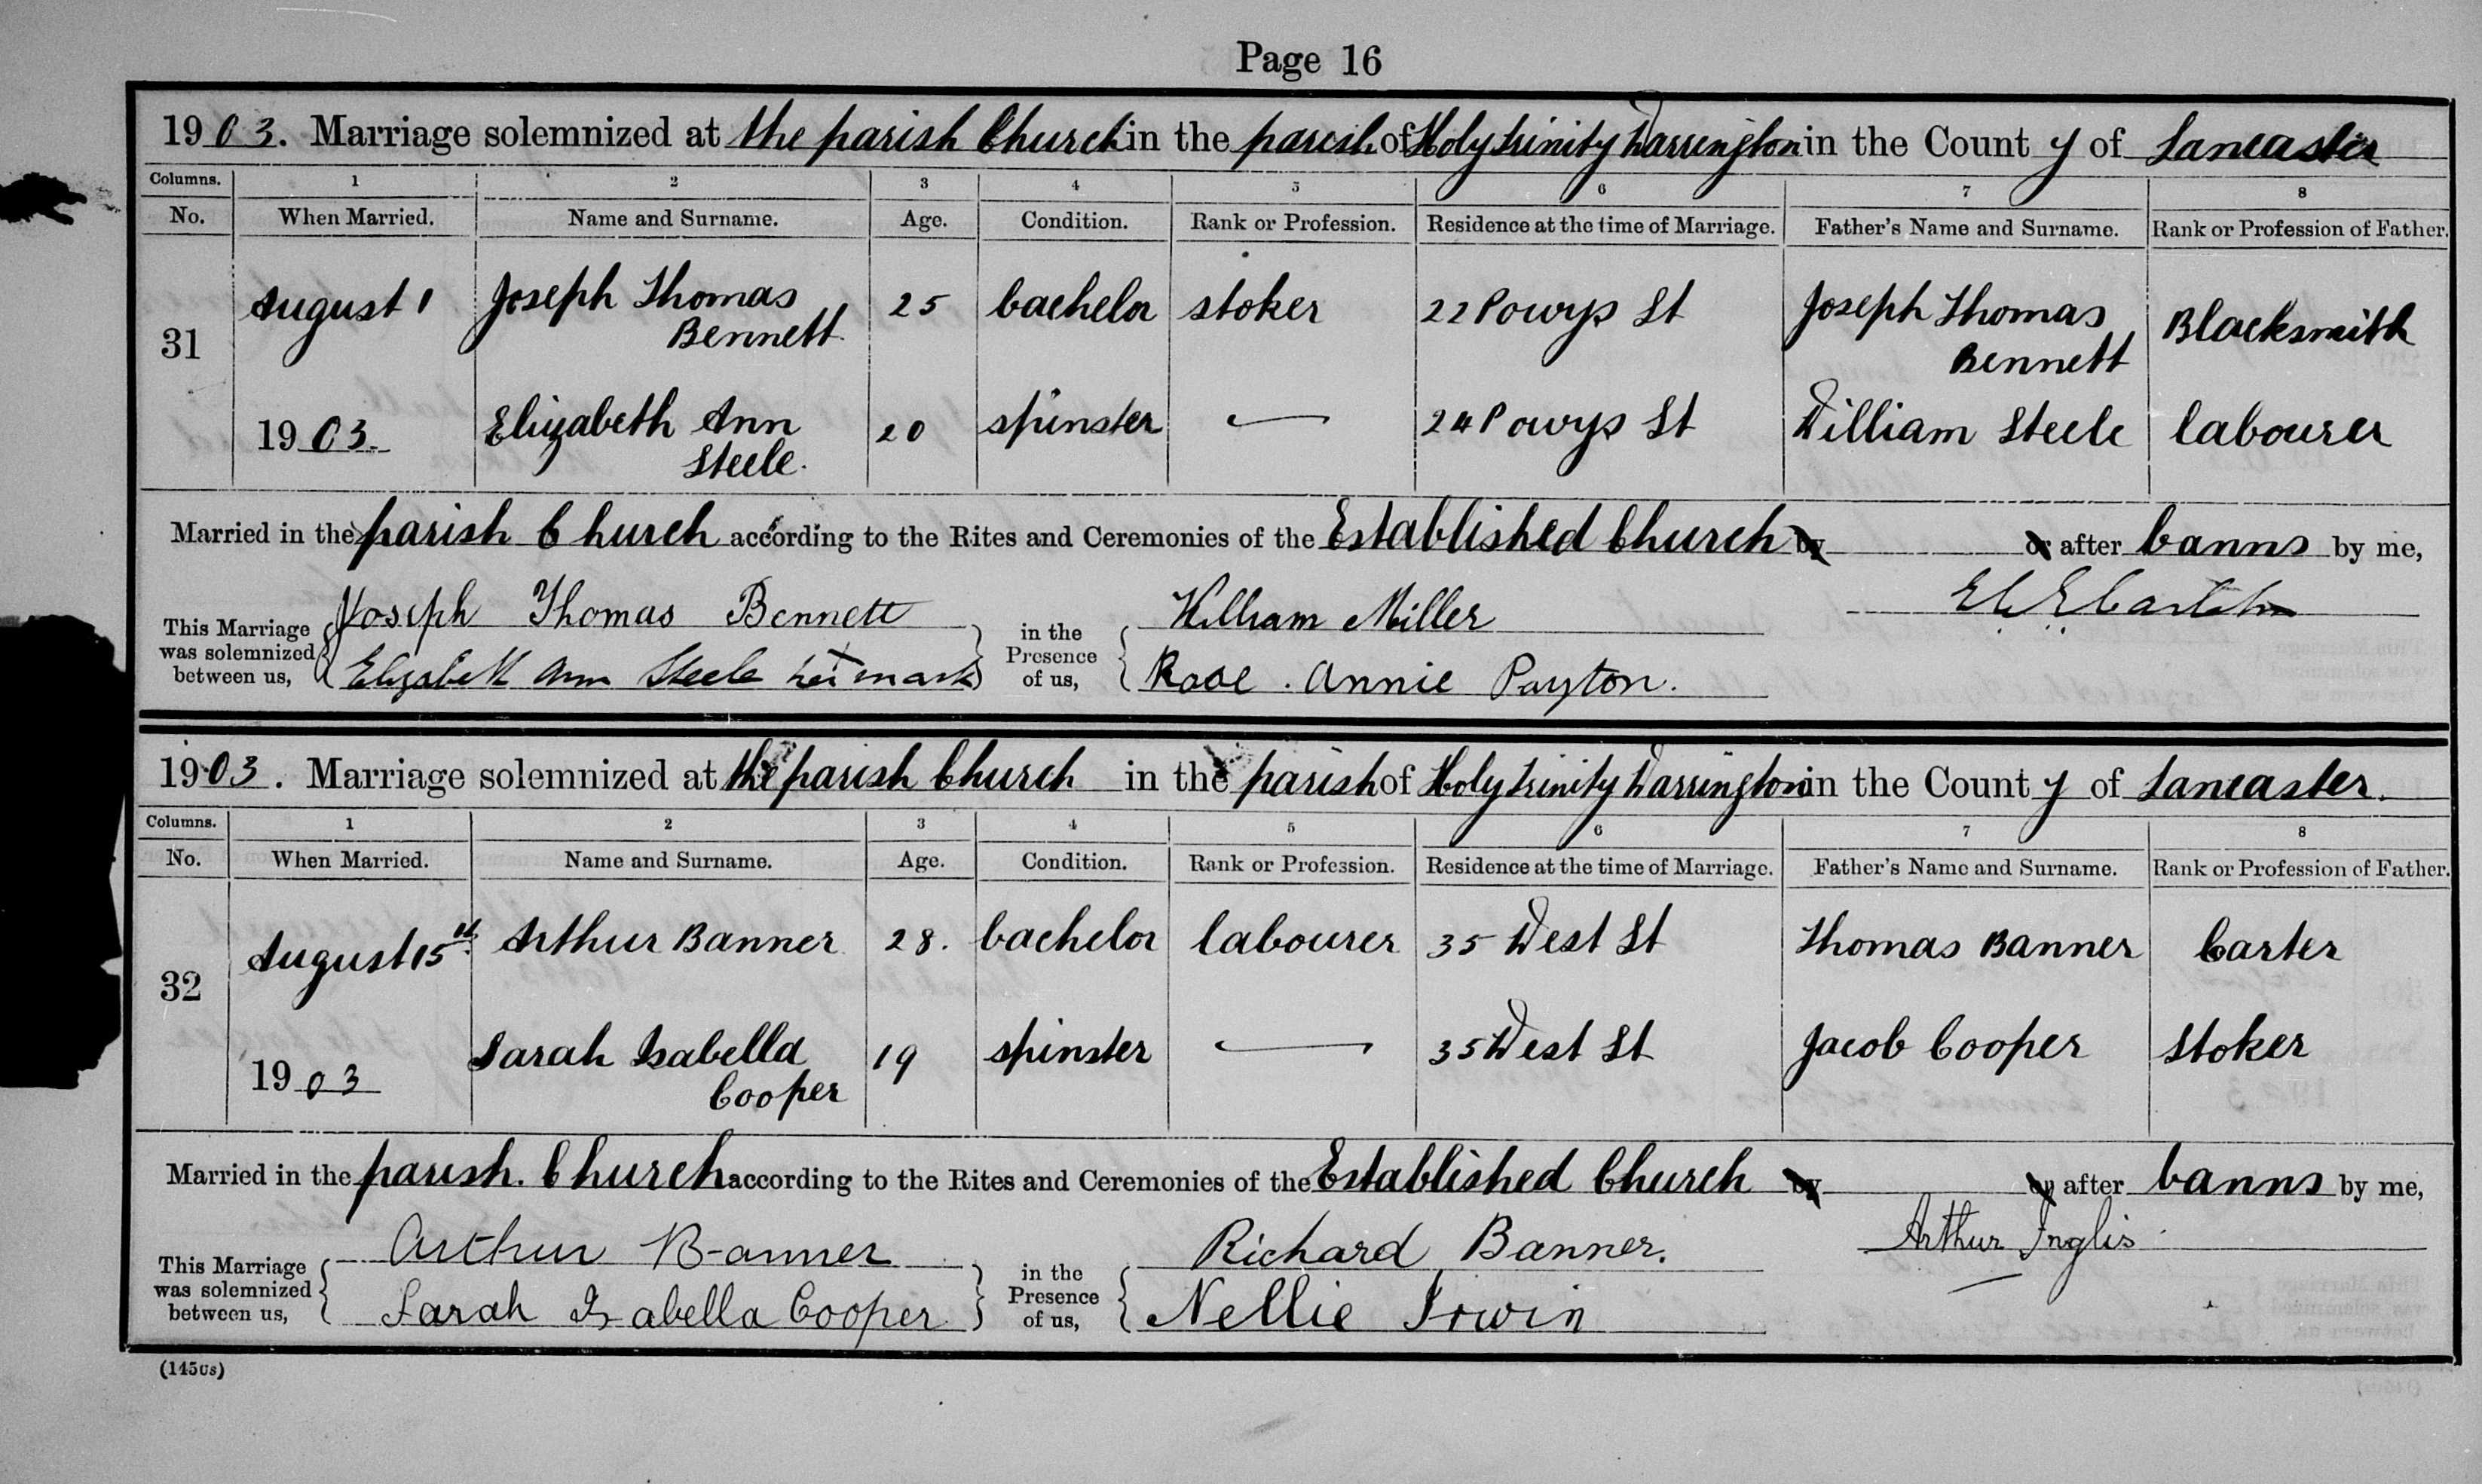 Page 16
1903. Marriage solemnized at the parish Church in the parish of Holy Trinity Warrington in the County of Lancaster
Columns. 1 2 3 4 5 6 7 8
No. When Married. Name and Surname. Age. Condition. Rank or Profession. Residence at the time of Marriage. Father's Name and Surname. Rank or Profession of Father.
31 August 1 Joseph Thomas Bennett 25 bachelor stoker 22 Powys St Joseph Thomas Bennett Blacksmith
1903. Elizabeth Ann Steele. 20 spinster — 24 Powys St William Steele labourer
Married in the parish Church according to the Rites and Ceremonies of the Established Church by or after banns by me,
This Marriage was solemnized between us, Joseph Thomas Bennett in the Presence of us, William Miller
Elizabeth Ann Steele her X mark Rose. Annie Payton.
1903. Marriage solemnized at the parish Church in the parish of Holy Trinity Warrington in the County of Lancaster.
Columns. 1 2 3 4 5 6 7 8
No. When Married. Name and Surname. Age. Condition. Rank or Profession. Residence at the time of Marriage. Father's Name and Surname. Rank or Profession of Father.
32 August 15th. Arthur Banner 28. bachelor labourer 35 West St Thomas Banner Carter
1903 Sarah Isabella Cooper 19 spinster — 35 West St Jacob Cooper Stoker
Married in the parish. Church according to the Rites and Ceremonies of the Established Church by or after banns by me,
Arthur Inglis
This Marriage was solemnized between us, Arthur Banner in the Presence of us, Richard Banner.
Sarah Isabella Cooper Nellie Irwin
(145us)